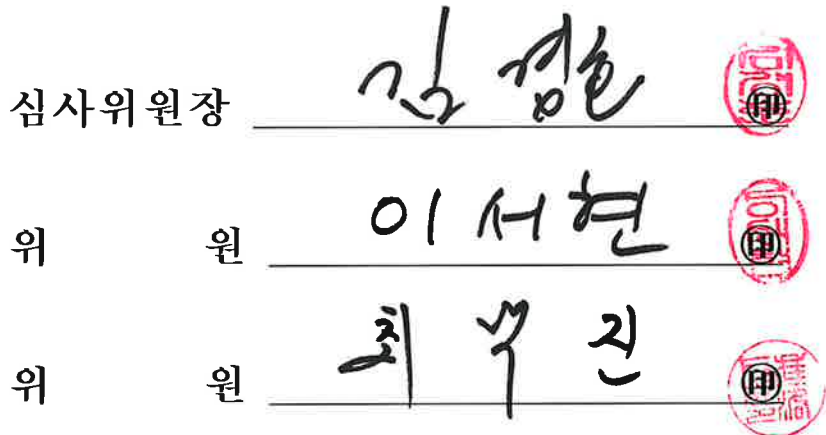 심사위원장 김 ㊞
위 원 이서현 ㊞
위 원 최 진 ㊞